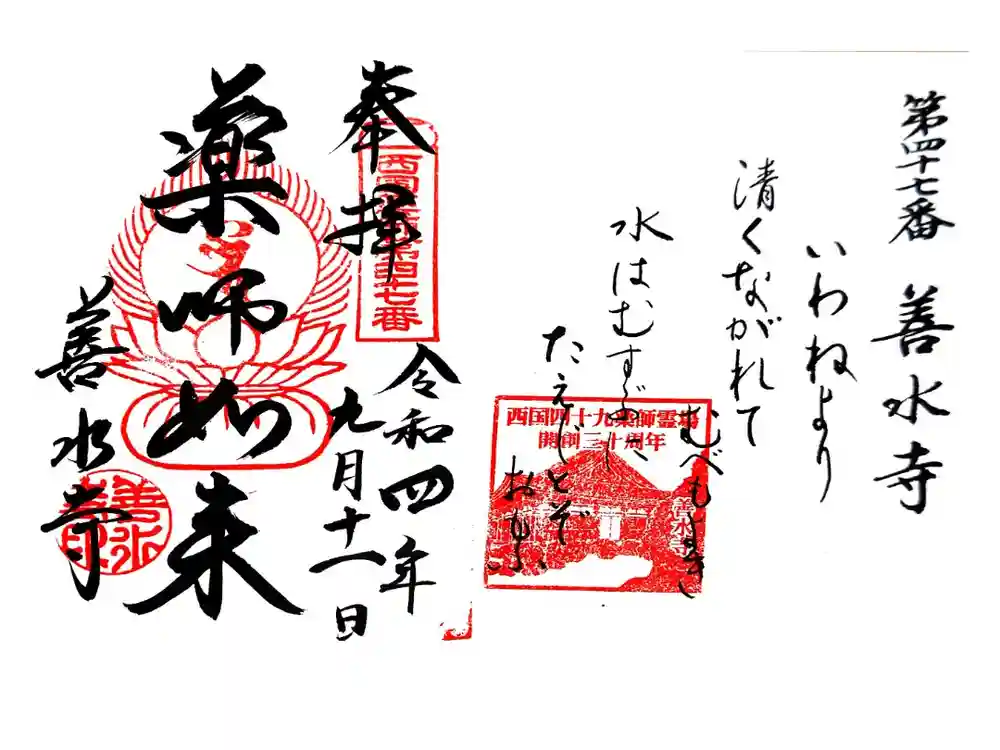 第四十七番 善水寺
いわねより
清くながれて
水はむすぶ
たえじとぞ
おもふ
西国四十九薬師霊場
開創三十周年
奉拝
西国薬師第四十七番
令和四年
九月十一日
薬師如来
善水寺